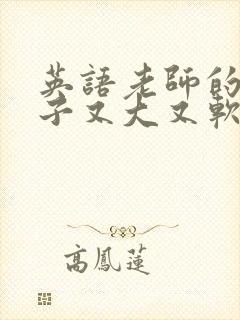 英語老師的
子又大又軟
高鳳蓮